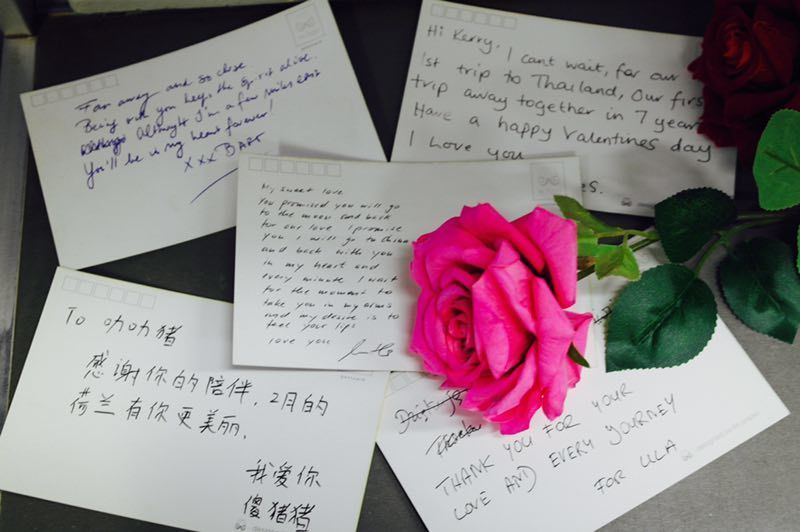 Far away and so close.
Being with you keeps the spirit alive.
Although I'm a few miles east
You'll be in my heart forever!
xxx BART
Hi Kerry, I cant wait, for our
1st trip to Thailand, Our first
trip away together in 7 years
Have a happy Valentines day
I love you
My sweet love
You promised you will go
to the moon and back
for our love I promise
you I will go to
and back with you
in my heart and
every minute I wait
for the moment to
take you in my arms
and my desire is to
feel your lips
love you
To 叻叻猪
感谢你的陪伴,2月的
荷兰有你更美丽.
我爱你
傻猪猪
THANK YOU FOR YOUR
LOVE AND EVERY JOURNEY
FOR ULA